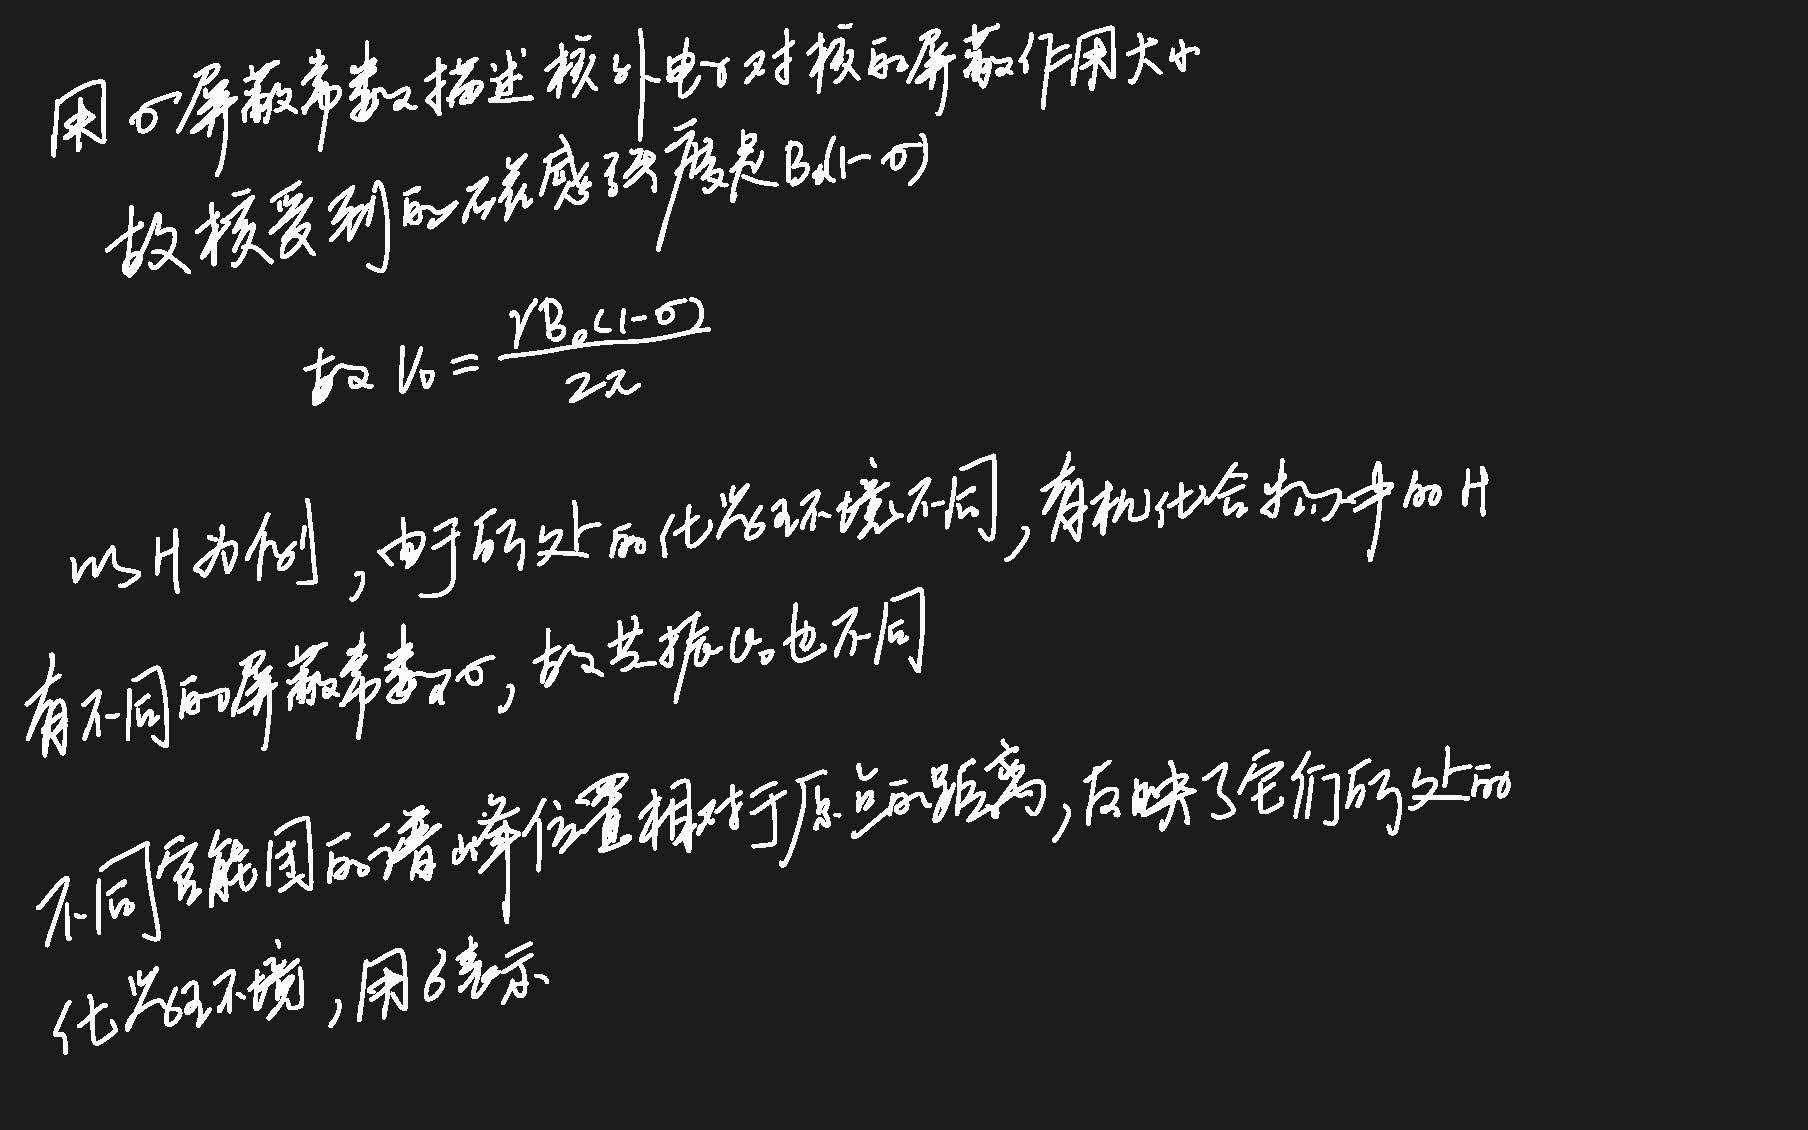 用σ屏蔽常数描述核外电子对核的屏蔽作用大小
故核受到的磁感强度是B₀(1-σ)
故 ν₀ = γB₀(1-σ) / 2π
以H为例,由于所处的化学环境不同,有机化合物中的H
有不同的屏蔽常数σ,故共振ν₀也不同
不同官能团的谱峰位置相对于原点的距离,反映了它们所处的
化学环境,用δ表示